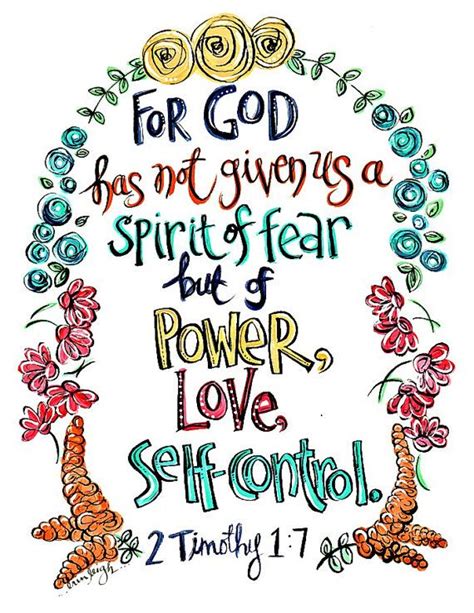 FOR GOD
has not given us a
spirit of fear
but of
POWER,
LOVE,
self-control.
2 Timothy 1:7